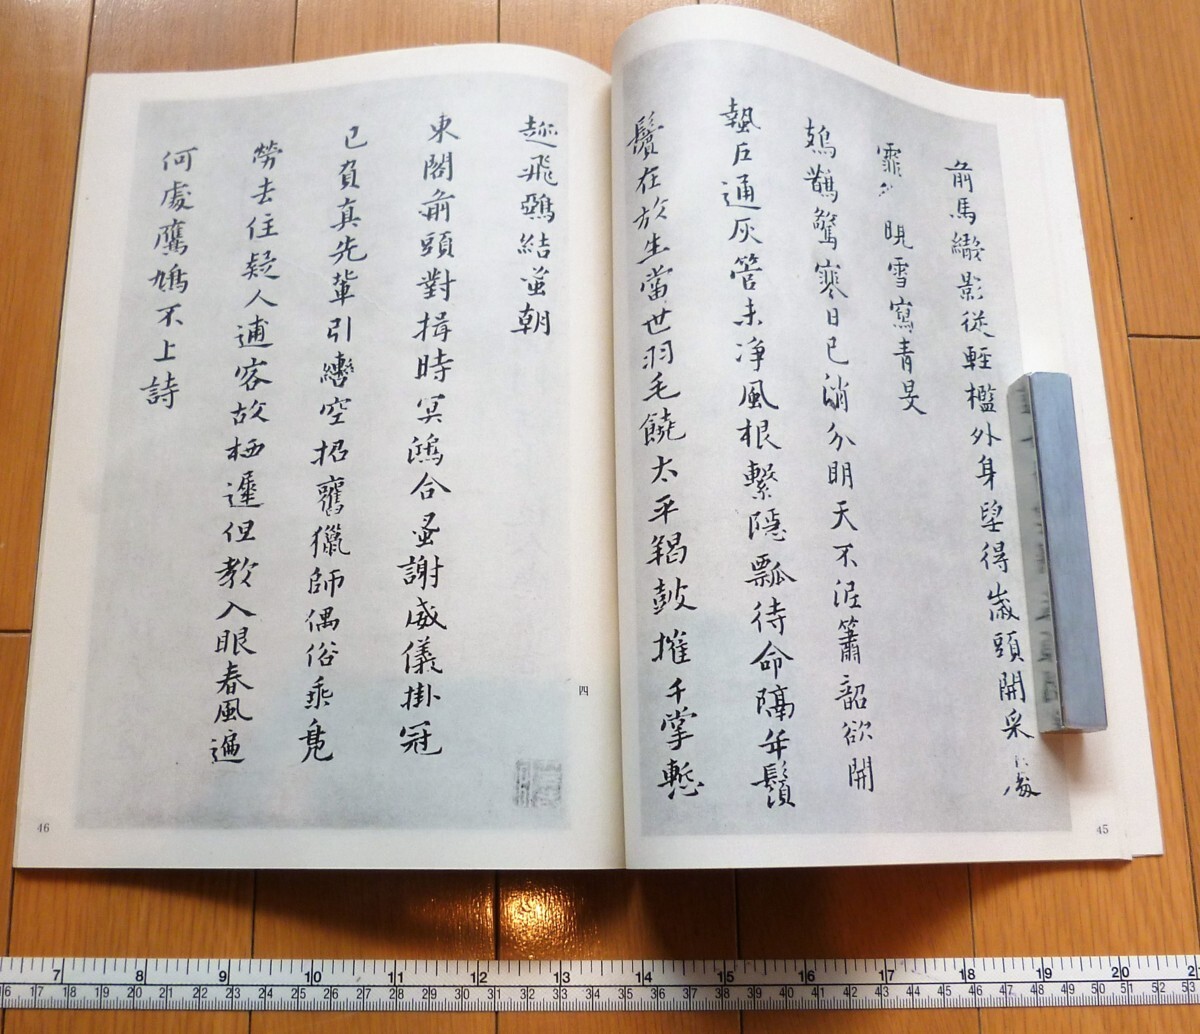 前馬影從輕檻外身望得歲頭開采處
霏晛雪寫青旻
鵲驚寒日已消分明天不涯簫韶欲開
執臣通灰管未淨風根繫隱瓢待命隔年鬚
鬢在放生當世羽毛饒太平羯鼓摧千掌慙
45
趂飛鵶結並朝
東閣前頭對揖時冥鴻合蚤謝威儀掛冠
已負真先輩引轡空招舊獵師偶俗乘鳧
勞去住疑人逋客故栖遲但教入眼春風遍
何處鷹鳩不上詩
四
46
7 8 9 10 11 12 13 14 15 16 17 18 19 20
17 18 19 20 21 22 23 24 25 26 27 28 29 30 31 32 33 34 35 36 37 38 39 40 41 42 43 44 45 46 47 48 49 50 51 52 53